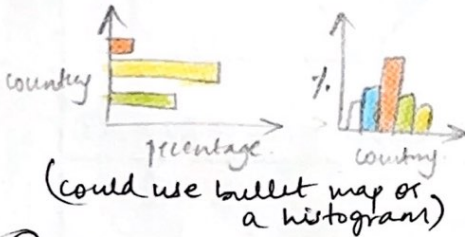 country
percentage
%
country
(could use bullet map or
a histogram)